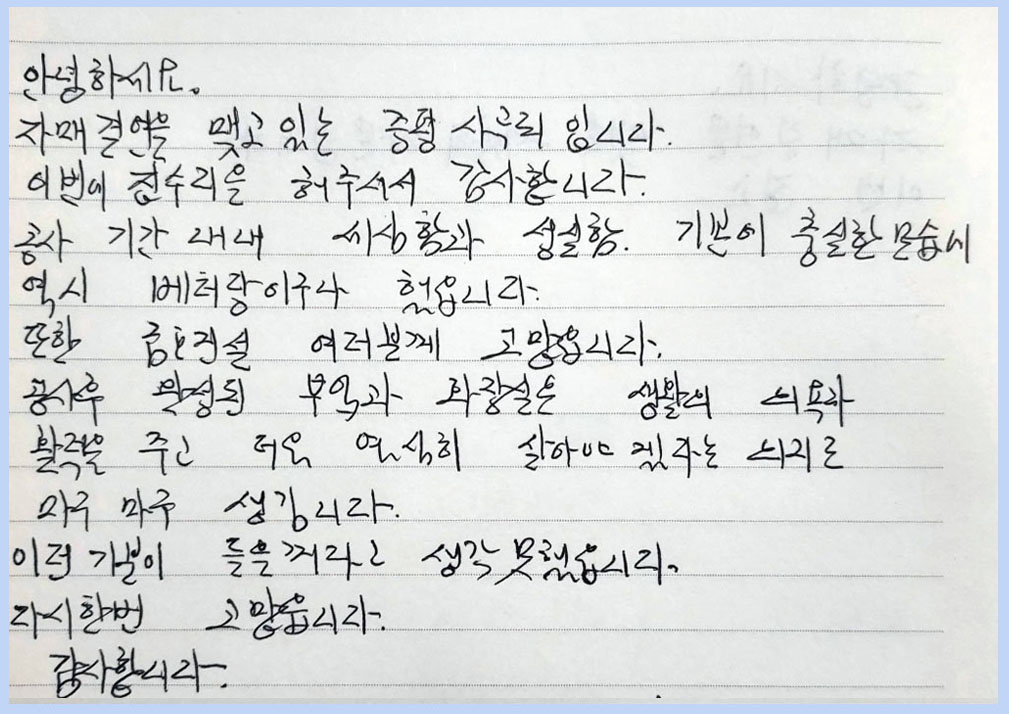 안녕하세요.
자매결연을 맺고 있는 증평 사곡리 입니다.
이번에 집수리을 해주셔서 감사합니다.
공사 기간 내내 세심함과 성실함. 기본이 충실한 모습에
역시 베터랑이구나 했읍니다.
또한 여러분께 고맙습니다.
공사후 완성된 부엌과 화장실은 생활의 의욕과
활력을 주고 더욱 열심히 살아야 겠다는 의지도
마구 마구 생깁니다.
이런 기분이 들을꺼라고 생각 못했습니다.
다시한번 고맙습니다.
감사합니다.